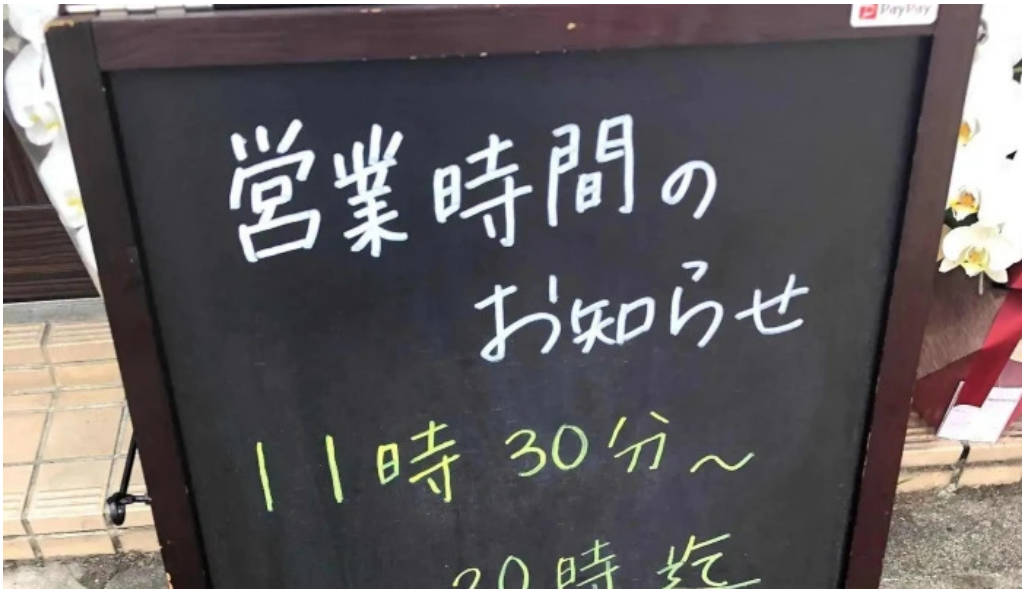 PayPay
営業時間の
お知らせ
11時30分～
20時迄